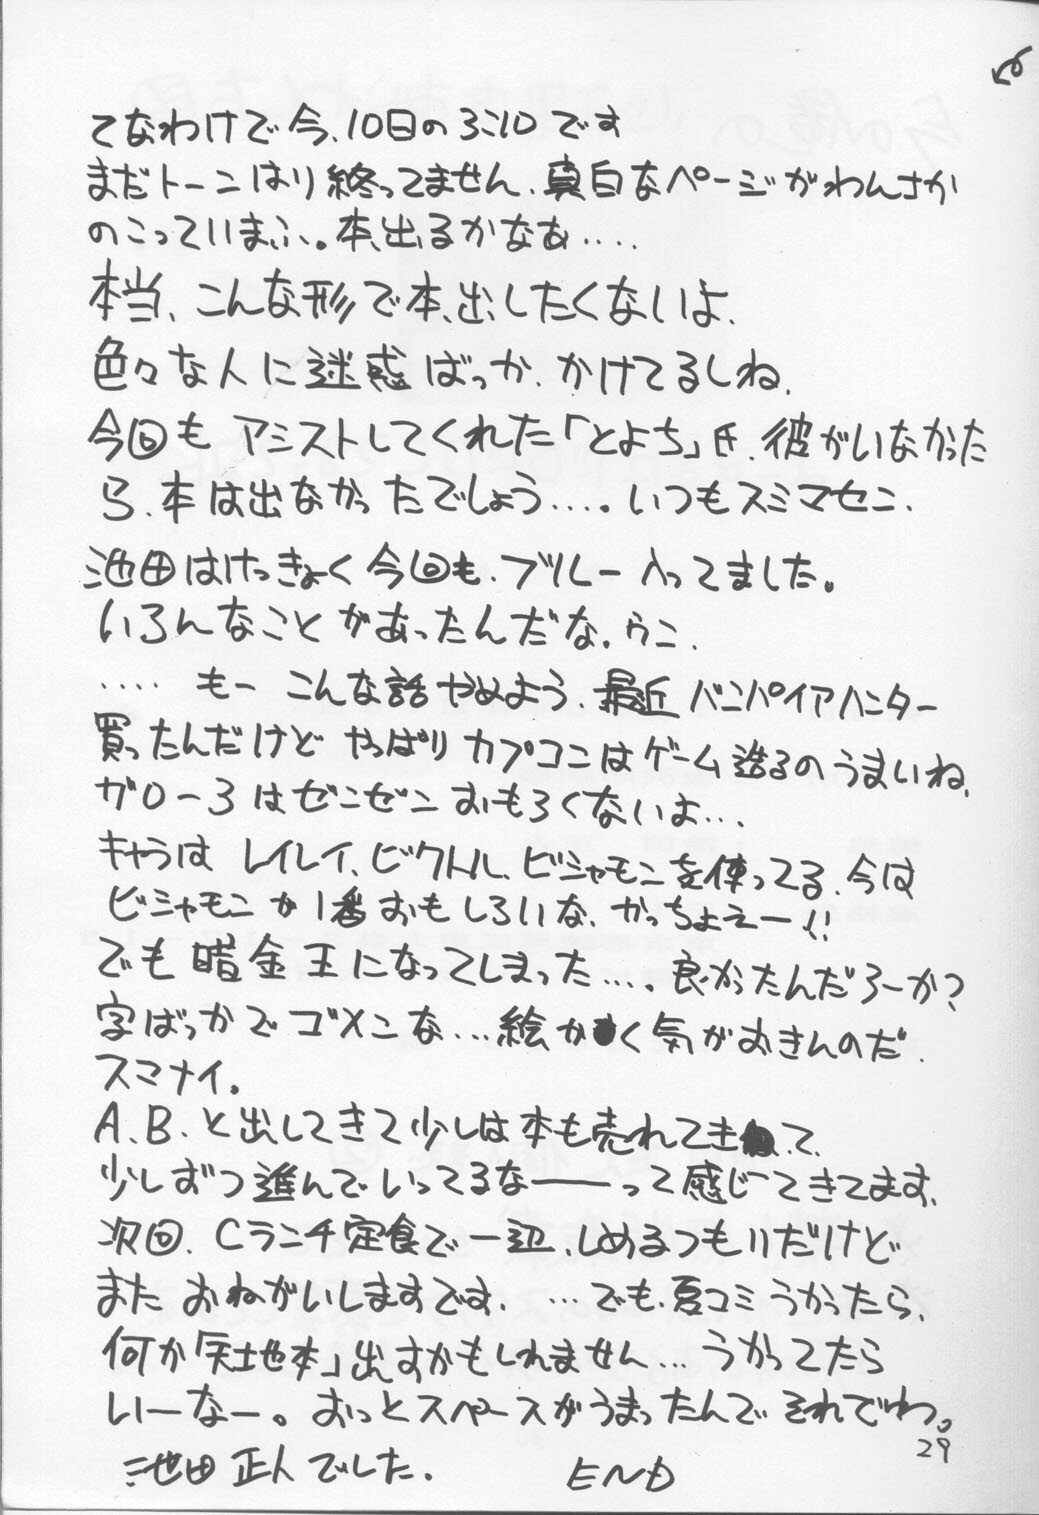 てなわけで今、10日の3:10です
まだトーンはり終ってません、真白なページがわんさか
のこっていまふ。本、出るかなぁ‥‥
本当、こんな形で本、出したくないよ、
色々な人に迷惑ばっか、かけてるしね、
今回も アシストしてくれた「とよち」氏、彼がいなかった
ら、本は出なかったでしょう‥‥。いつもスミマセン、
池田はけっきょく今回も、ブルー入ってました。
いろんなことがあったんだな。ウン、
‥‥ もー こんな話やめよう、最近 バンパイアハンター
買ったんだけど やっぱり カプコンはゲーム造るのうまいね、
ガロー3はゼンゼン おもろくないよ…
キャラは レイレイ、ビクトル、ビシャモンを使ってる、今は
ビシャモンが1番おもしろいな、かっちょえー!!
でも 暗金王になってしまった…。良かったんだろーか?
字ばっかでゴメンな…絵かく気がおきんのだ、
スマナイ。
A、B、と出してきて少しは本も売れてきて、
少しずつ進んでいってるなーーって感じてきてます、
次回、Cランチ定食で一辺、しめるつもりだけど
また おねがいしますです、…でも、夏コミうかったら、
何か「天地本」出すかもしれません…うかってたら
いーなー。おっとスペースがうまったんで それでわ。
池田 正人 でした. END
29